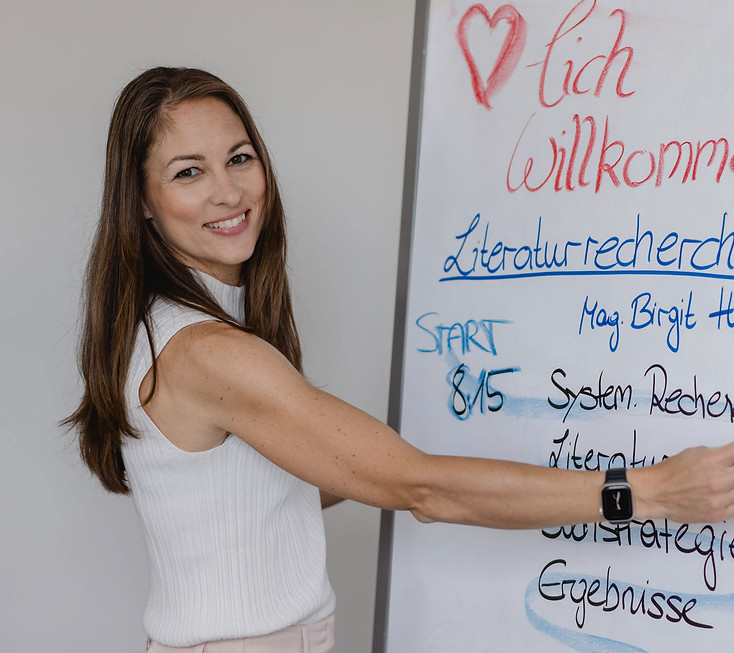 ♥lich
Willkomm
Literaturrecherch
Mag. Birgit H
START
8:15 System. Recher
Literatu
strategie
Ergebnisse